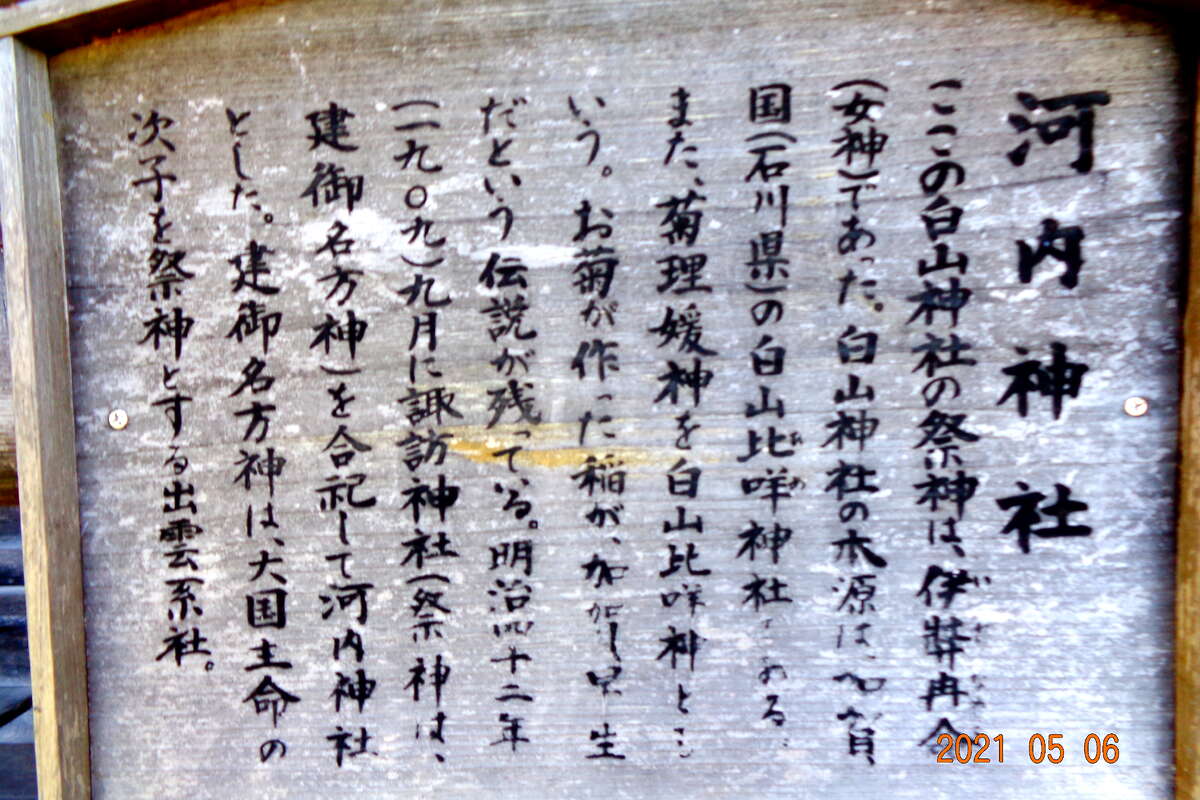 河内神社
ここの白山神社の祭神は、伊弉冉命
(女神)であった。白山神社の本源は、加賀
国(石川県)の白山比咩神社である。
また、菊理媛神を白山比咩神とも
いう。お菊が作った稲が、加賀
だという伝説が残っている。明治四十二年
(一九〇九)九月に諏訪神社(祭神は、
建御名方神)を合祀して河内神社
とした。建御名方神は、大国主命の
次子を祭神とする出雲系社。
2021 05 06